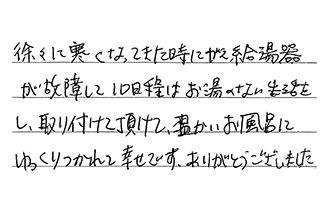 徐々に寒くなってきた時にガス給湯器
が故障して10日程はお湯のない生活を
し、取り付けて頂けて、温かいお風呂に
ゆっくりつかれて幸せです、ありがとうございました